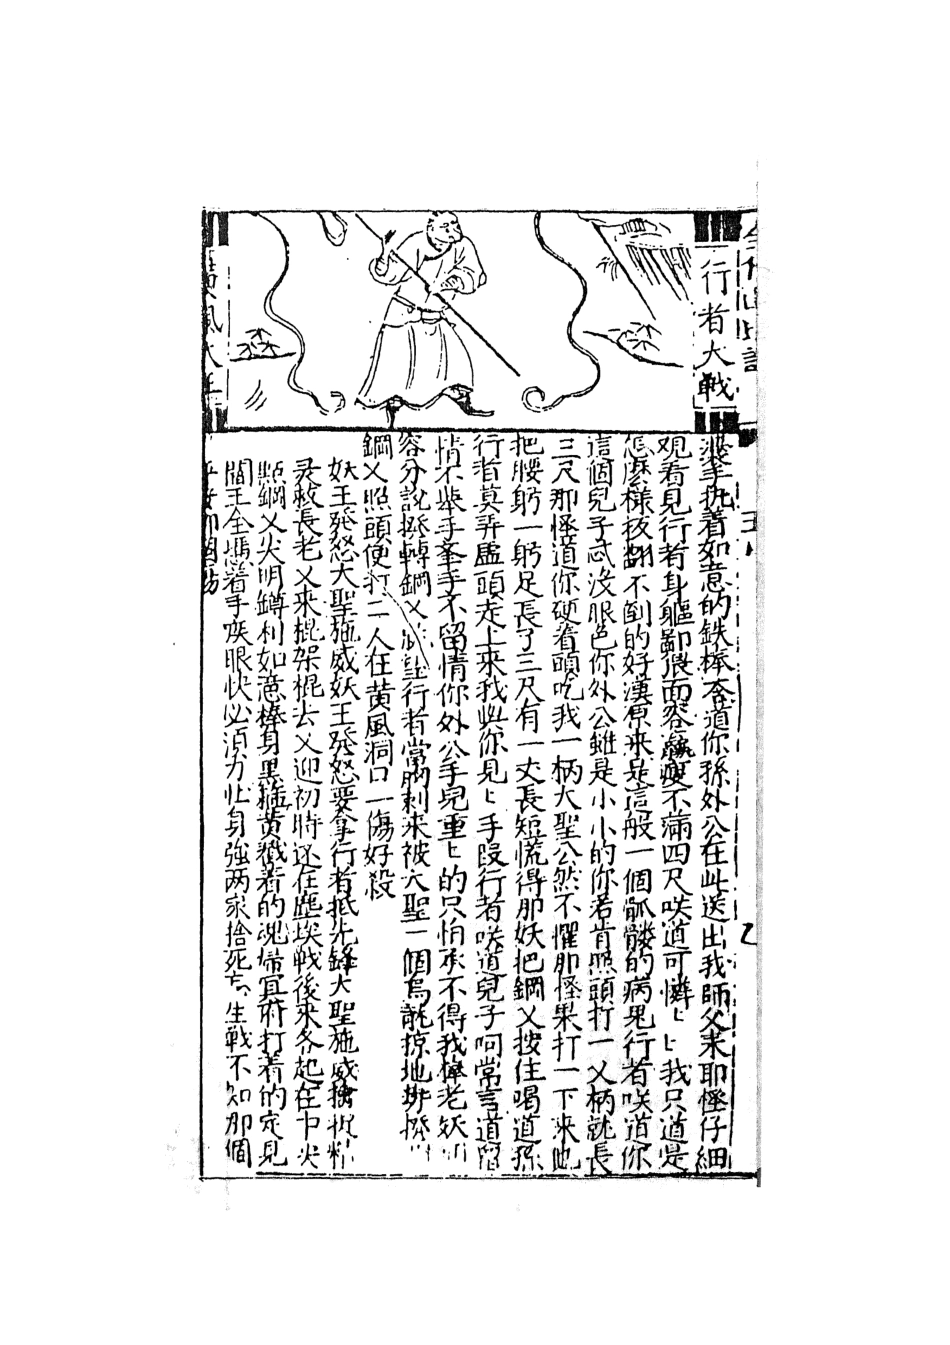 行者大戰
黃風大王
婆手执着如意的鉄棒答道你孫外公在此送出我師父来耶怪仔細
观看見行者身軀鄙猥面容羸瘦不滿四尺咲道可憐〻〻我只道是
怎麽樣扳翻不倒的好漢原来是這般一個骷髏的病鬼行者咲道你
這個兒子忒没眼色你外公雖是小小的你若肯照頭打一乂柄就長
三尺那怪道你硬着頭吃我一柄大聖公然不懼那怪果打一下来他
把腰躬一躬足長了三尺有一丈長短慌得那妖把鋼乂按住喝道孫
行者莫弄虛頭走上来我與你見〻手段行者咲道兒子呵常言道留
情不举手举手不留情你外公手兒重〻的只怕承不得我棒老妖
容分說撚轉鋼乂行者當胸刺来被大聖一個烏龍掠地
鋼乂照頭便打二人在黄風洞口一傷好殺
妖王發怒大聖施威妖王發怒要拿行者抵先鋒大聖施威擒捉精
灵救長老乂来棍架棍去乂迎初時还在塵埃戦後来各起在中央
點鋼乂尖明鐏利如意棒身黑箍黄戳着的魂歸冥府打着的定見
閻王全憑着手疾眼快必須力壯身強两家捨死忘生戦不知那個